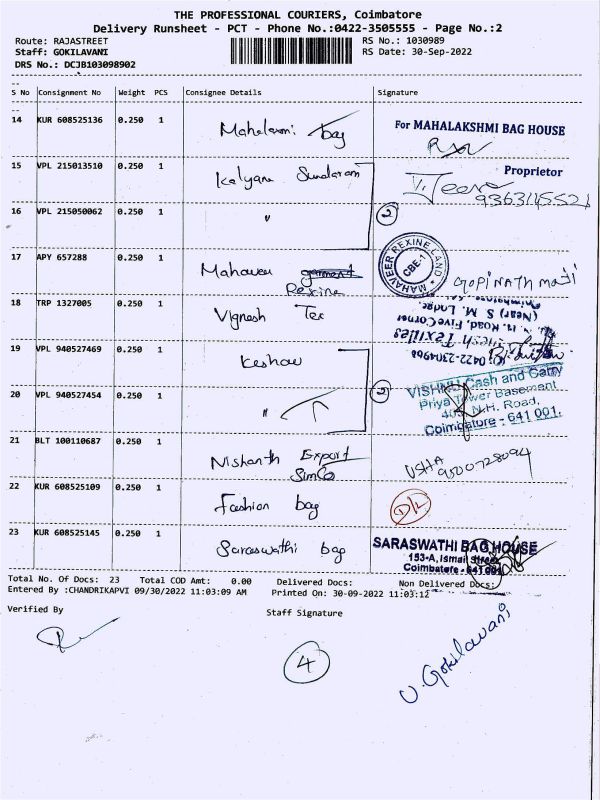 THE PROFESSIONAL COURIERS, Coimbatore
Delivery Runsheet - PCT - Phone No.:0422-3505555 - Page No.:2
Route: RAJASTREET
RS No.: 1030989
Staff: GOKILAVANI
RS Date: 30-Sep-2022
DRS No.: DCJB103098902
S No Consignment No Weight PCS Consignee Details Signature
14 KUR 608525136 0.250 1 Mahalaxmi bag For MAHALAKSHMI BAG HOUSE
Proprietor
15 VPL 215013510 0.250 1 Kalyana Sundaram V. Jeeva
9363145521
16 VPL 215050062 0.250 1 " 2
17 APY 657288 0.250 1 Mahaveer garment
Rexine
MAHAVEER REXINE LAND
CBE-1
GOPINATH
18 TRP 1327005 0.250 1 Vignesh Tex
(Near) S. M. Lodge,
N. H. Road, Five Corner
Textiles
0422-2304968
19 VPL 940527469 0.250 1 Keshav
20 VPL 940527454 0.250 1 " 2
VISHNU Cash and Carry
Priya Tower Basement
N.H. Road,
Coimbatore - 641 001.
21 BLT 100110687 0.250 1 Nishanth Export
USHA
9500728094
22 KUR 608525109 0.250 1 Fashion bag D/L
23 KUR 608525145 0.250 1 Saraswathi bag
SARASWATHI BAG HOUSE
153-A, Ismail Street
Coimbatore - 641 001
Total No. Of Docs: 23 Total COD Amt: 0.00 Delivered Docs: Non Delivered Docs:
Entered By :CHANDRIKAPVI 09/30/2022 11:03:09 AM Printed On: 30-09-2022 11:03:12
Verified By
Staff Signature
4
V. Gokilavani